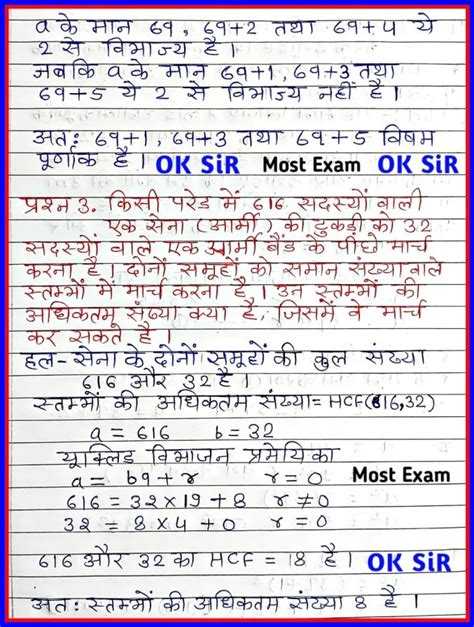 a के मान 6q, 6q+2 तथा 6q+4 ये
2 से विभाज्य है।
जबकि a के मान 6q+1, 6q+3 तथा
6q+5 ये 2 से विभाज्य नहीं है।
अतः 6q+1, 6q+3 तथा 6q+5 विषम
पूर्णांक है। OK SiR Most Exam OK SiR
प्रश्न 3. किसी परेड में 616 सदस्यों वाली
एक सेना (आर्मी) की टुकड़ी को 32
सदस्यों वाले एक आर्मी बैंड के पीछे मार्च
करना है। दोनों समूहों को समान संख्या वाले
स्तम्भों में मार्च करना है। उन स्तम्भों की
अधिकतम संख्या क्या है, जिसमें वे मार्च
कर सकते है।
हल- सेना के दोनों समूहों की कुल संख्या
616 और 32 है।
स्तम्भों की अधिकतम संख्या = HCF(616,32)
a = 616 b = 32
यूक्लिड विभाजन प्रमेयिका
a = bq + r r = 0 Most Exam
616 = 32 × 19 + 8 r ≠ 0
32 = 8 × 4 + 0 r = 0
616 और 32 का HCF = 18 है। OK SiR
अतः स्तम्भों की अधिकतम संख्या 8 है।